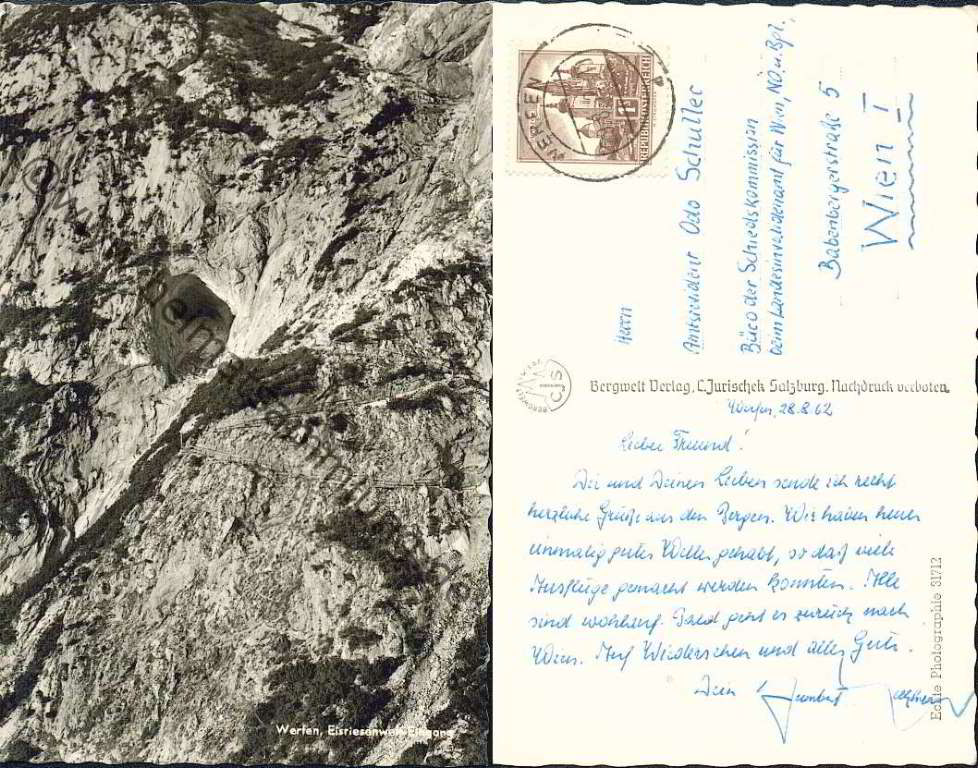 Werfen, Eisriesenwelt-Eingang
WERFEN
REPUBLIK ÖSTERREICH
Herrn
Amtsdirektor Odo Schuller
Büro der Schiedskommission
beim Landesinvalidenamt für Wien, NÖ. u. Bgl.
Babenbergerstraße 5
Wien I
Bergwelt Verlag, C. Jurischek Salzburg. Nachdruck verboten.
CJS
Werfen, 28.8.62
Lieber Freund!
Dir und Deinen Lieben sende ich recht
herzliche Grüße aus den Bergen. Wir haben heuer
einmalig gutes Wetter gehabt, so daß viele
Ausflüge gemacht werden konnten. Alle
sind wohlauf. Bald geht es zurück nach
Wien. Auf Wiedersehen und alles Gute.
Dein
Echte Photographie 31712